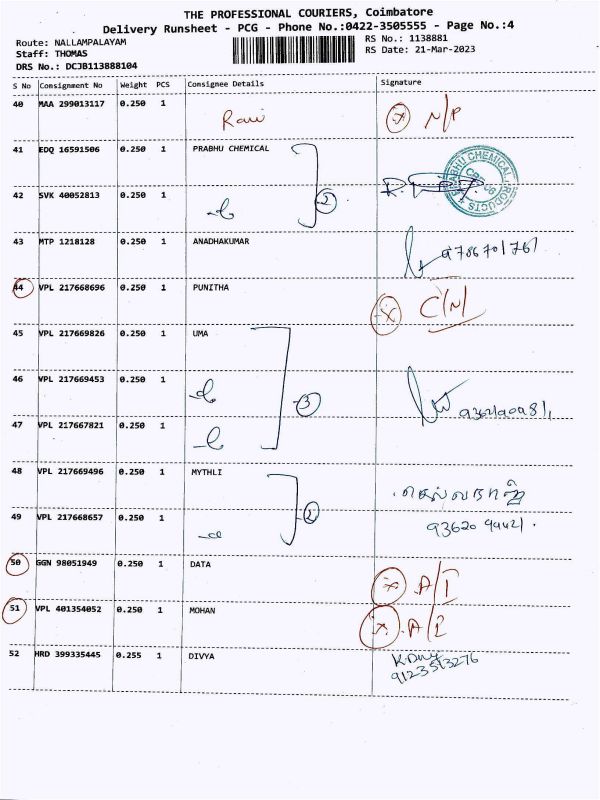 THE PROFESSIONAL COURIERS, Coimbatore
Delivery Runsheet - PCG - Phone No.:0422-3505555 - Page No.:4
Route: NALLAMPALAYAM RS No.: 1138881
Staff: THOMAS RS Date: 21-Mar-2023
DRS No.: DCJB113888104
S No Consignment No Weight PCS Consignee Details Signature
40 MAA 299013117 0.250 1 Ravi N/P
41 EDQ 16591506 0.250 1 PRABHU CHEMICAL
PRABHU CHEMICAL PRODUCTS
42 SVK 40052813 0.250 1 2
43 MTP 1218128 0.250 1 ANADHAKUMAR
44 VPL 217668696 0.250 1 PUNITHA C/N
45 VPL 217669826 0.250 1 UMA
46 VPL 217669453 0.250 1 3
47 VPL 217667821 0.250 1
48 VPL 217669496 0.250 1 MYTHLI
49 VPL 217668657 0.250 1 2
50 GGN 98051949 0.250 1 DATA A/I
51 VPL 401354052 0.250 1 MOHAN A/I
52 HRD 399335445 0.255 1 DIVYA
9123513276